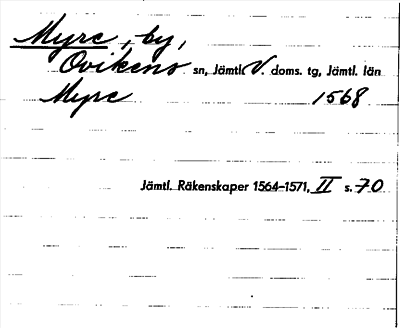 Myre, by,
Ovikens sn, Jämtl. V. doms. tg, Jämtl. län
Myre 1568
Jämtl. Räkenskaper 1564–1571, II s. 70